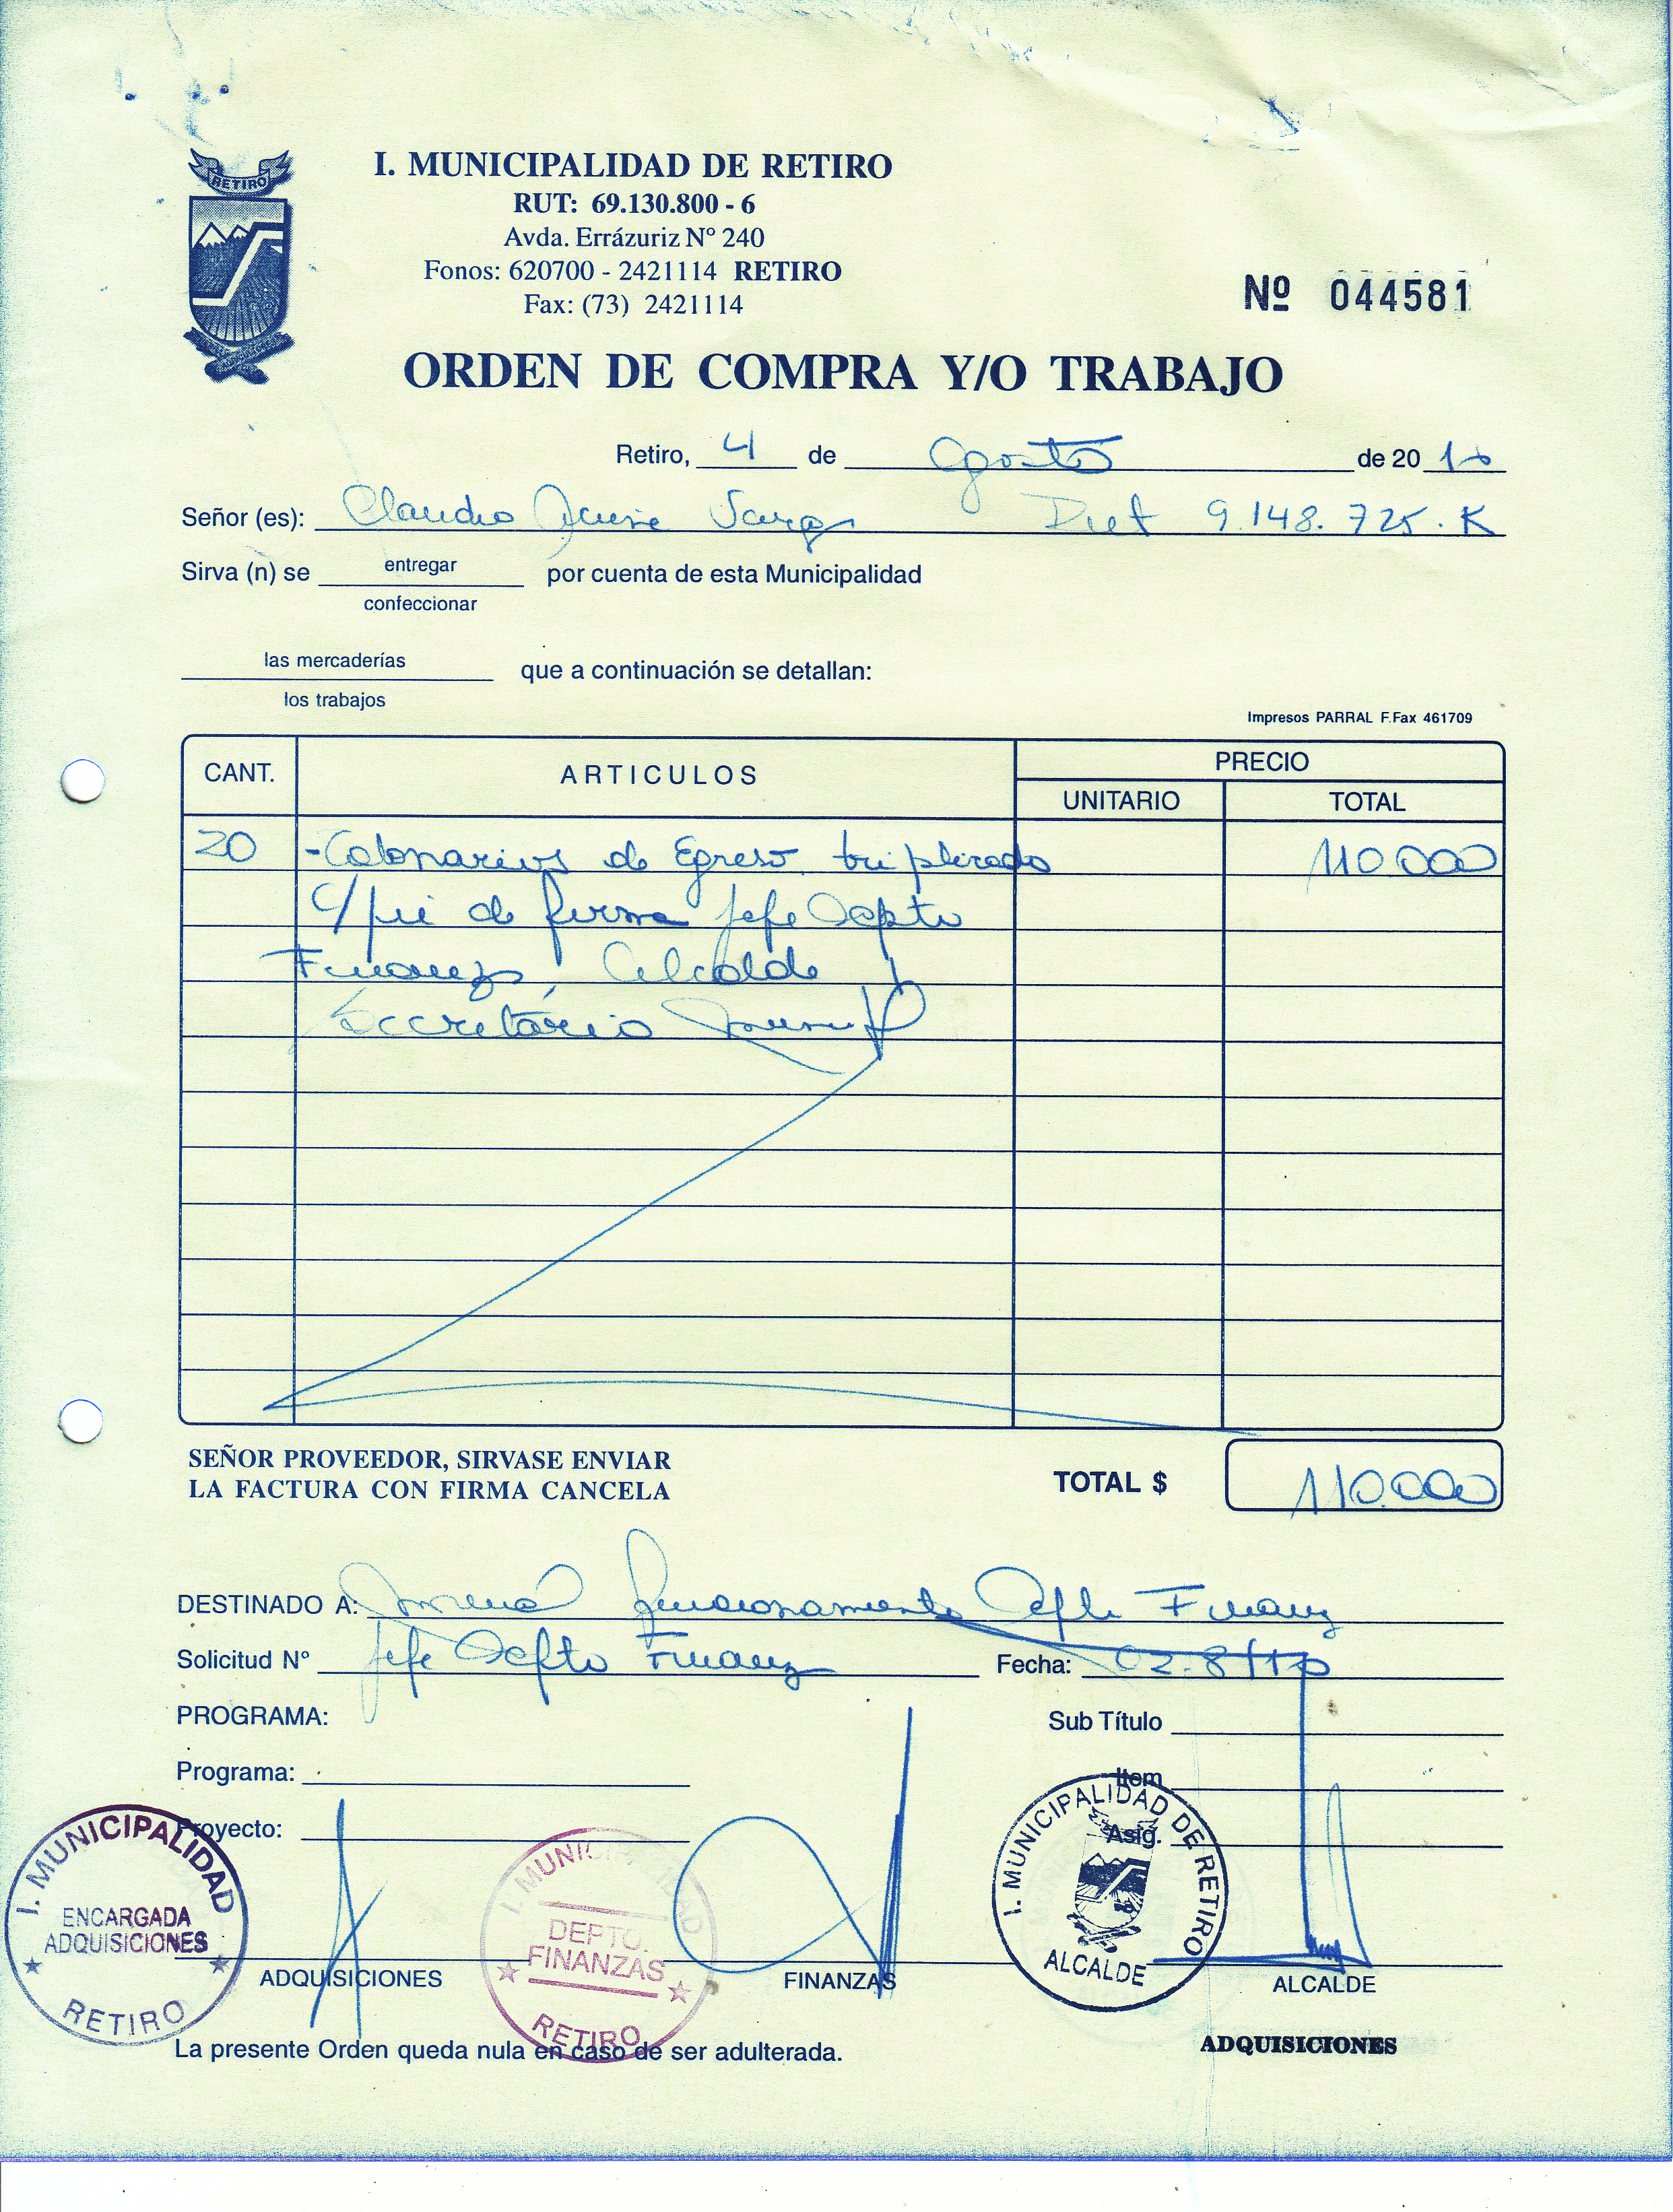 RETIRO
I. MUNICIPALIDAD DE RETIRO
RUT: 69.130.800 - 6
Avda. Errázuriz Nº 240
Fonos: 620700 - 2421114 RETIRO
Fax: (73) 2421114
Nº 044581
ORDEN DE COMPRA Y/O TRABAJO
Retiro, 4 de Agosto de 2010
Señor (es): Claudio Rut 9.148.725.K
Sirva (n) se entregar por cuenta de esta Municipalidad
confeccionar
las mercaderías que a continuación se detallan:
los trabajos
Impresos PARRAL F.Fax 461709
CANT. ARTICULOS PRECIO
UNITARIO TOTAL
20 - de Egreso triplicado 110.000
c/pie de firma Jefe Depto
Finanzas, Alcalde y
Secretario
SEÑOR PROVEEDOR, SIRVASE ENVIAR
LA FACTURA CON FIRMA CANCELA
TOTAL $ 110.000
DESTINADO A: funcionamiento Depto Finanz
Solicitud Nº Jefe Depto Finanz Fecha: 02.8/10
PROGRAMA: Sub Título
Programa: Item
Proyecto: Asig.
I. MUNICIPALIDAD
ENCARGADA
ADQUISICIONES
RETIRO
I. MUNICIPALIDAD
DEPTO.
FINANZAS
RETIRO
I. MUNICIPALIDAD DE RETIRO
ALCALDE
ADQUISICIONES FINANZAS ALCALDE
La presente Orden queda nula en caso de ser adulterada.
ADQUISICIONES